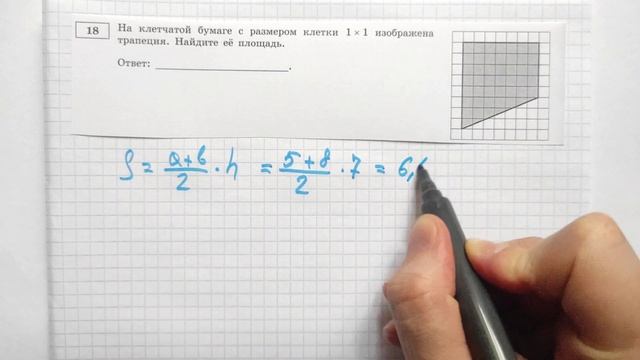 18 На клетчатой бумаге с размером клетки 1 × 1 изображена
трапеция. Найдите её площадь.
Ответ: ____________________.
S = (a+b)/2 · h = (5+8)/2 · 7 = 6,